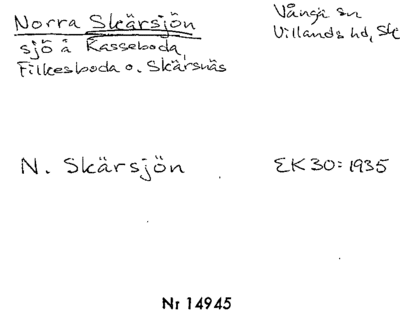 Norra Skärsjön
sjö å Kasseboda,
Filkesboda o. Skärsnäs
Vånga sn
Villands hd, Sk
N. Skärsjön
EK30:1935
Nr 14945